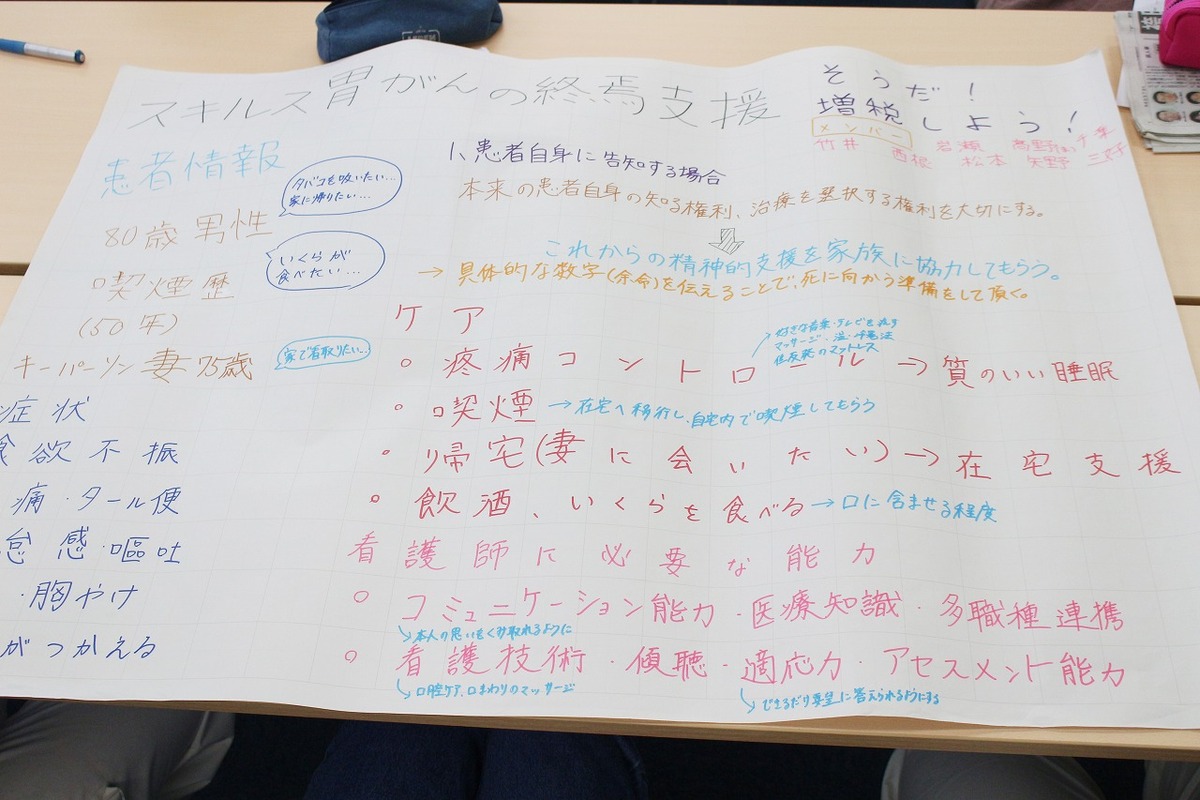 スキルス胃がんの終焉支援
そうだ!
増税しよう!
メンバー
竹井 西根 岩瀬 松本 高野 矢野 千葉 三好
患者情報
80歳男性
タバコを吸いたい…
家に帰りたい…
喫煙歴
(50年)
いくらが
食べたい…
キーパーソン妻75歳
家で看取りたい…
症状
食欲不振
痛・タール便
怠感・嘔吐
・胸やけ
がつかえる
1、患者自身に告知する場合
本来の患者自身の知る権利、治療を選択する権利を大切にする。
これからの精神的支援を家族に協力してもらう。
→具体的な数字(余命)を伝えることで、死に向かう準備をして頂く。
ケア
好きな音楽・テレビを流す
マッサージ・温・冷罨法
住友苑のマットレス
○疼痛コントロール→質のいい睡眠
○喫煙→在宅へ移行し、自宅内で喫煙してもらう
○帰宅(妻に会いたい)→在宅支援
○飲酒、いくらを食べる→口に含ませる程度
看護師に必要な能力
○コミュニケーション能力・医療知識・多職種連携
本人の思いをくみ取れるように
○看護技術・傾聴・適応力・アセスメント能力
口腔ケア、口まわりのマッサージ
できるだけ要望に答えられるようにする